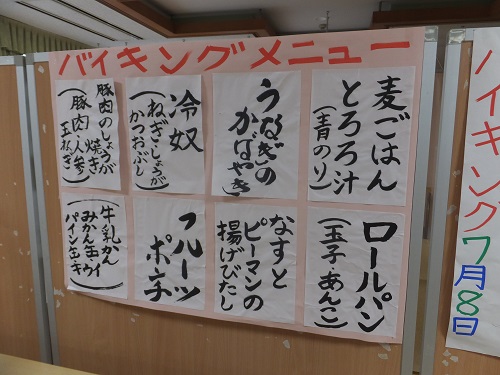 バイキングメニュー
麦ごはん
とろろ汁
(青のり)
うなぎの
かばやき
冷奴
(ねぎ・しょうが
かつおぶし)
豚肉のしょうが
焼き
(豚肉 人参
玉ねぎ)
ロールパン
(玉子 あんこ)
なすと
ピーマンの
揚げびたし
フルーツ
ポンチ
牛乳かん
みかん缶 ウイ
パイン缶 キ
バイキング7月8日